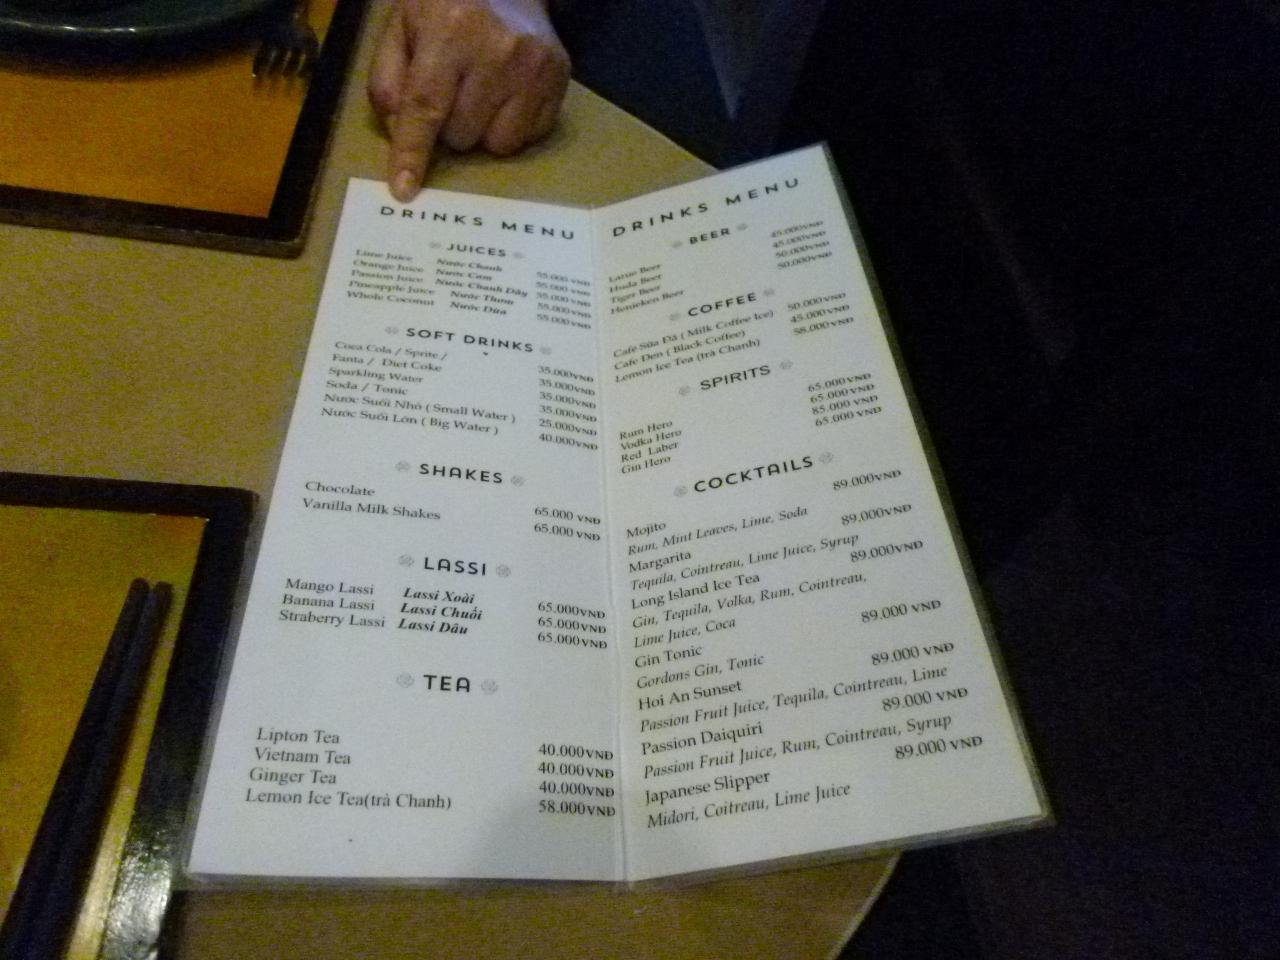 DRINKS MENU
JUICES
Lime Juice Nước Chanh 55.000 VNĐ
Orange Juice Nước Cam 55.000 VNĐ
Passion Juice Nước Chanh Dây 55.000 VNĐ
Pineapple Juice Nước Thơm 55.000 VNĐ
Whole Coconut Nước Dừa 55.000 VNĐ
SOFT DRINKS
Coca Cola / Sprite /
Fanta / Diet Coke 35.000VNĐ
Sparkling Water 35.000VNĐ
Soda / Tonic 35.000VNĐ
Nước Suối Nhỏ ( Small Water ) 25.000VNĐ
Nước Suối Lớn ( Big Water ) 40.000VNĐ
SHAKES
Chocolate 65.000 VNĐ
Vanilla Milk Shakes 65.000 VNĐ
LASSI
Mango Lassi Lassi Xoài 65.000VNĐ
Banana Lassi Lassi Chuối 65.000VNĐ
Straberry Lassi Lassi Dâu 65.000VNĐ
TEA
Lipton Tea 40.000VNĐ
Vietnam Tea 40.000VNĐ
Ginger Tea 40.000VNĐ
Lemon Ice Tea(trà Chanh) 58.000VNĐ
DRINKS MENU
BEER
Larue Beer 45.000VNĐ
Huda Beer 45.000VNĐ
Tiger Beer 50.000VNĐ
Heneiken Beer 50.000VNĐ
COFFEE
Café Sữa Đá ( Milk Coffee Ice) 50.000VNĐ
Cafe Đen ( Black Coffee) 45.000VNĐ
Lemon Ice Tea (trà Chanh) 58.000VNĐ
SPIRITS
Rum Hero 65.000VNĐ
Vodka Hero 65.000VNĐ
Red Laber 85.000VNĐ
Gin Hero 65.000VNĐ
COCKTAILS
Mojito 89.000VNĐ
Rum, Mint Leaves, Lime, Soda
Margarita 89.000VNĐ
Tequila, Cointreau, Lime Juice, Syrup
Long Island Ice Tea 89.000VNĐ
Gin, Tequila, Volka, Rum, Cointreau,
Lime Juice, Coca
Gin Tonic 89.000 VNĐ
Gordons Gin, Tonic
Hoi An Sunset 89.000 VNĐ
Passion Fruit Juice, Tequila, Cointreau, Lime
Passion Daiquiri 89.000 VNĐ
Passion Fruit Juice, Rum, Cointreau, Syrup
Japanese Slipper 89.000 VNĐ
Midori, Coitreau, Lime Juice